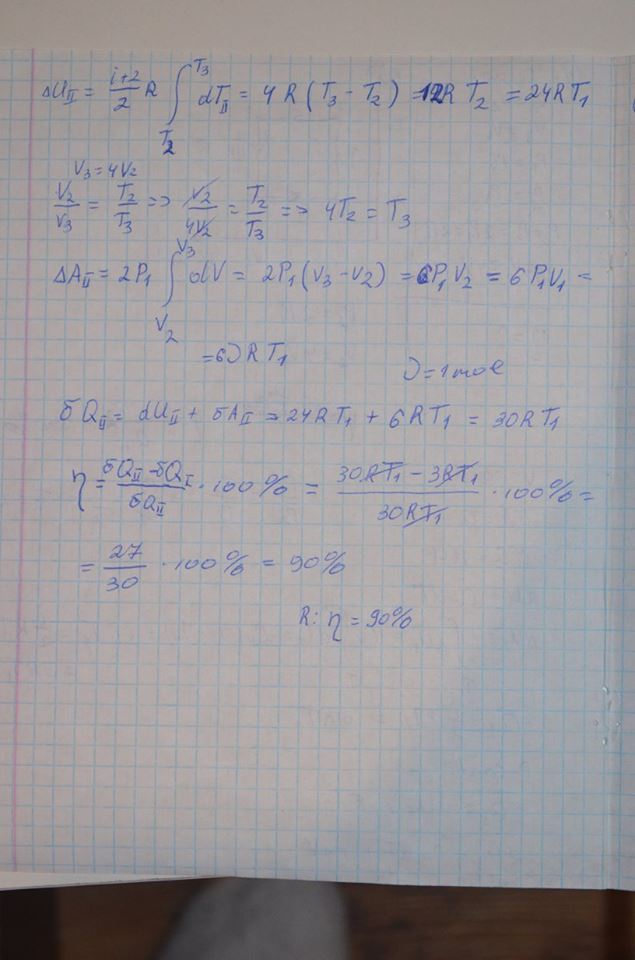 ΔU_II = (i+2)/2 R ∫_{T₂}^{T₃} dT_II = 4R(T₃ - T₂) = 12RT₂ = 24RT₁
V₃ = 4V₂
V₂/V₃ = T₂/T₃ => V₂/4V₂ = T₂/T₃ => 4T₂ = T₃
ΔA_II = 2P₁ ∫_{V₂}^{V₃} dV = 2P₁(V₃ - V₂) = 6P₁V₂ = 6P₁V₁ =
= 6νRT₁ ν = 1 mol
δQ_II = dU_II + δA_II = 24RT₁ + 6RT₁ = 30RT₁
η = (δQ_II - δQ_I)/δQ_II · 100% = (30RT₁ - 3RT₁)/30RT₁ · 100% =
= 27/30 · 100% = 90%
R: η = 90%